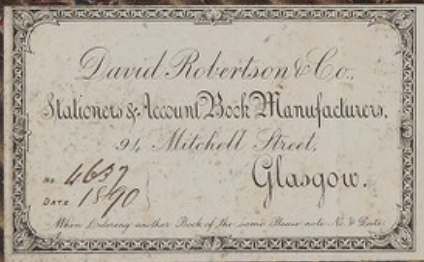 David Robertson & Co.,
Stationers & Account Book Manufacturers,
94 Mitchell Street,
Glasgow.
No. 4637
DATE 1890
When Ordering another Book of the same Please note No. & Date